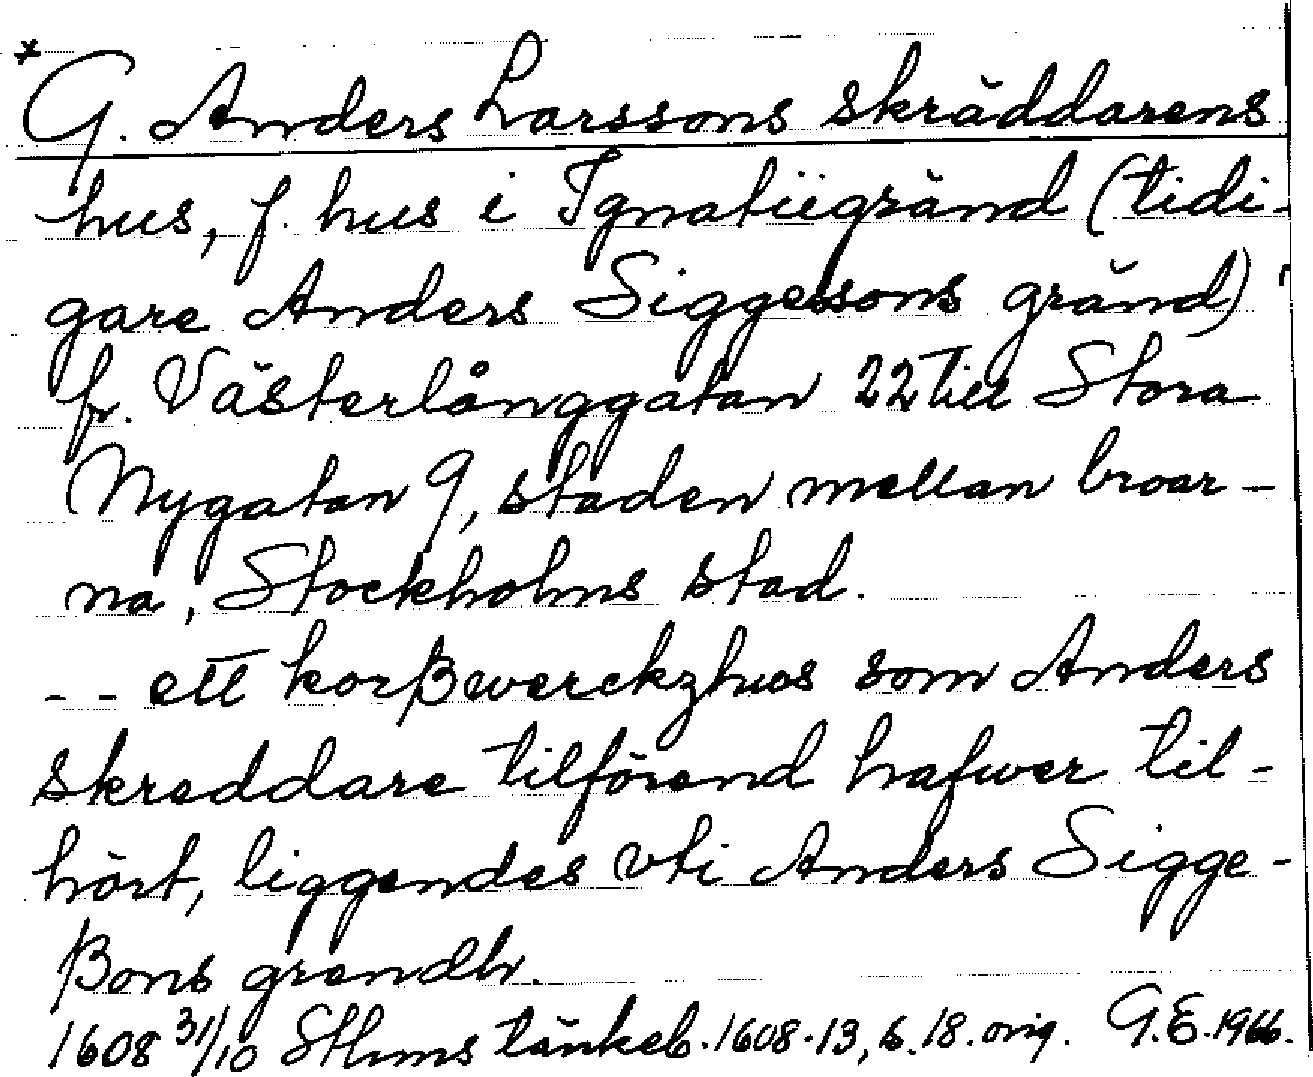 *G. Anders Larssons skräddarens
hus, f. hus i Ignatiigränd (tidi-
gare Anders Siggessons gränd)
fr. Västerlånggatan 22 till Stora
Nygatan 9, staden mellan broar-
na, Stockholms stad.
-- ett korßwerckzhws som Anders
skreddare tilförend hafwer til-
hört, liggendes vti Anders Sigge-
ßons grendh.
1608 31/10 Sthms tänkeb. 1608-13, s. 18. orig. G.E. 1966.